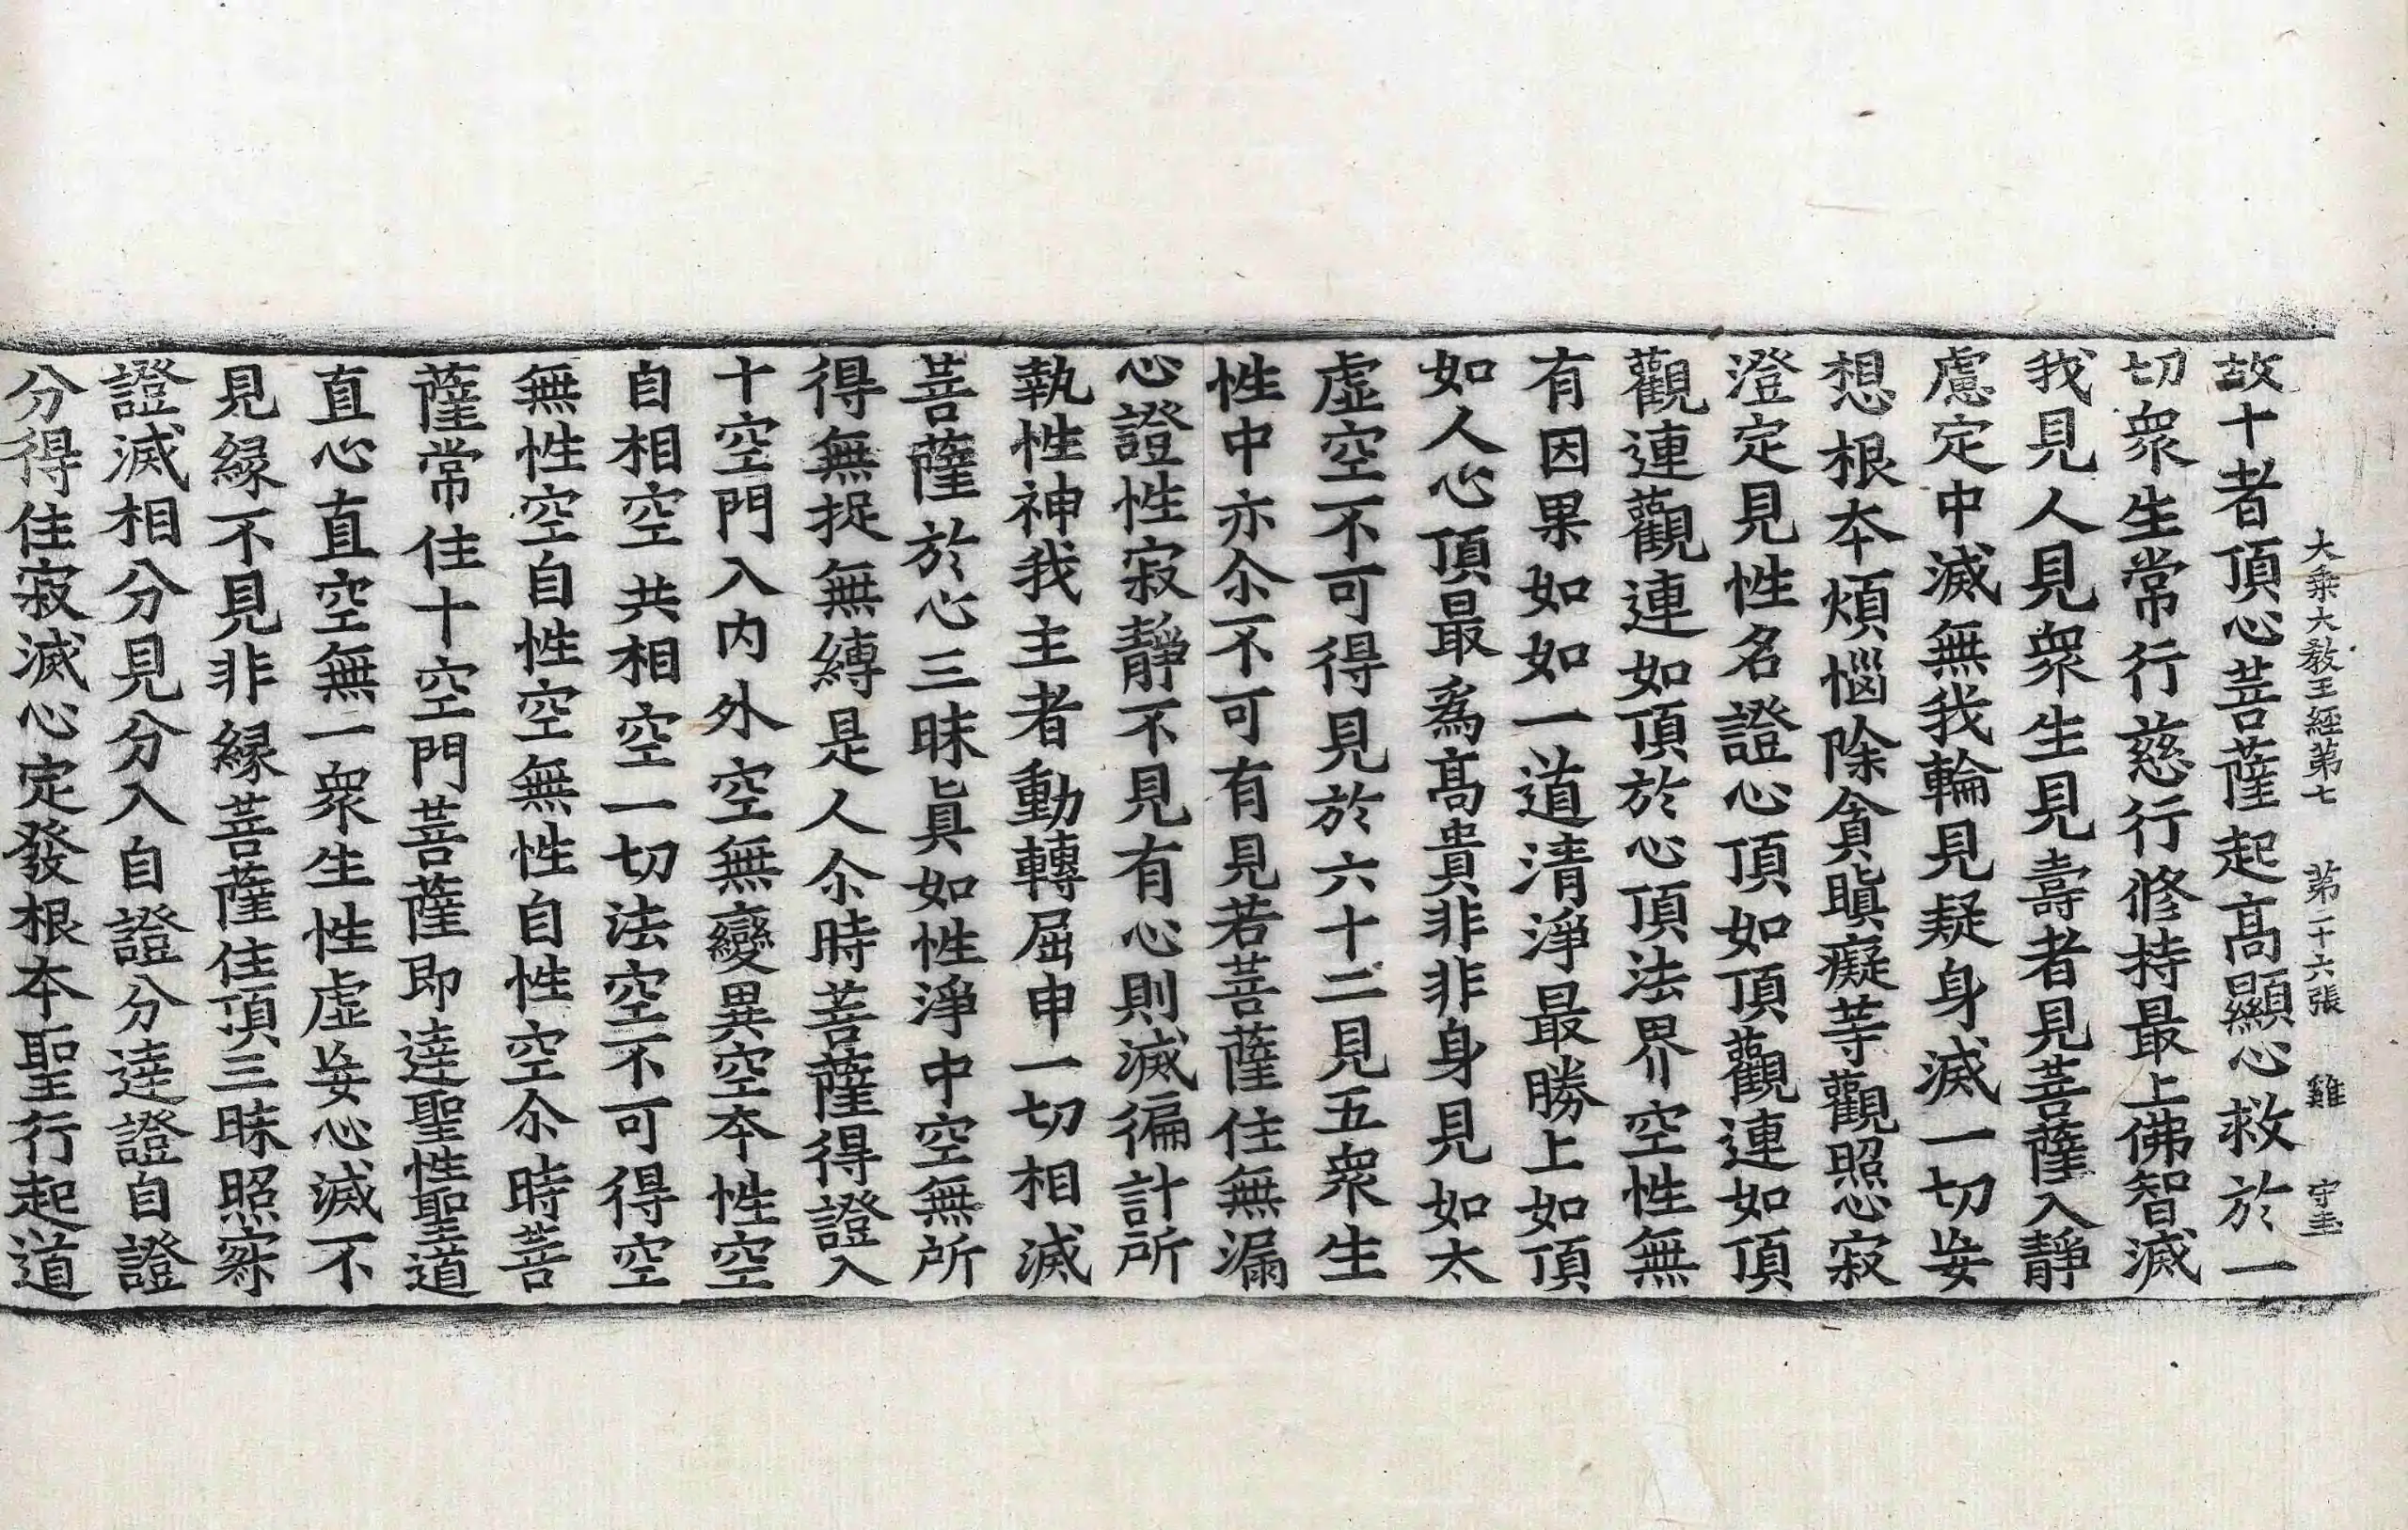 大乘大教王經第七　第二十六張　雞　守圭
故十者頂心菩薩起高顯心救於一
切衆生常行慈行修持最上佛智滅
我見人見衆生見壽者見菩薩入靜
慮定中滅無我輪見疑身滅一切妄
想根本煩惱除貪瞋癡等觀照心寂
澄定見性名證心頂如頂觀連如頂
觀連觀連如頂於心頂法界空性無
有因果如如一道清淨最勝上如頂
如人心頂最爲髙貴非非身見如太
虛空不可得見於六十二見五衆生
性中亦尒不可有見若菩薩住無漏
心證性寂靜不見有心則滅徧計所
執性神我主者動轉屈申一切相滅
菩薩於心三昧眞如性淨中空無所
得無捉無縛是人尒時菩薩得證入
十空門入内外空無變異空本性空
自相空共相空一切法空不可得空
無性空自性空無性自性空尒時菩
薩常住十空門菩薩即達聖性聖道
直心直空無一衆生性虛妄心滅不
見緣不見非緣菩薩住頂三昧照察
證滅相分見分入自證分達證自證
分得住寂滅心定發根本聖行起道